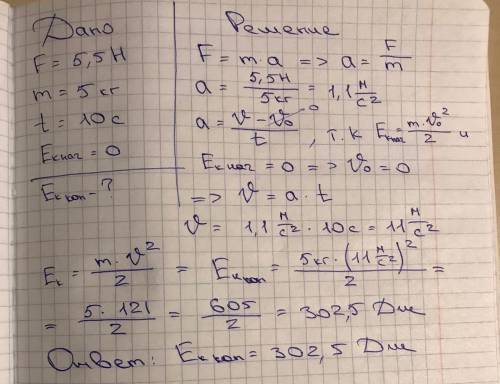 Дано
F = 5,5 Н
m = 5 кг
t = 10 с
Eк наг = 0
Eк коп - ?
Решение
F = m·a => a = F/m
a = 5,5 Н / 5 кг = 1,1 м/с²
a = (v - v₀)/t , т.к Eк наг = m·v₀²/2 и
0
Eк наг = 0 => v₀ = 0
=> v = a·t
v = 1,1 м/с² · 10 с = 11 м/с²
Eк = m·v²/2 = Eк коп = 5 кг·(11 м/с²)²/2 =
= 5·121/2 = 605/2 = 302,5 Дж
Ответ: Eк коп = 302,5 Дж